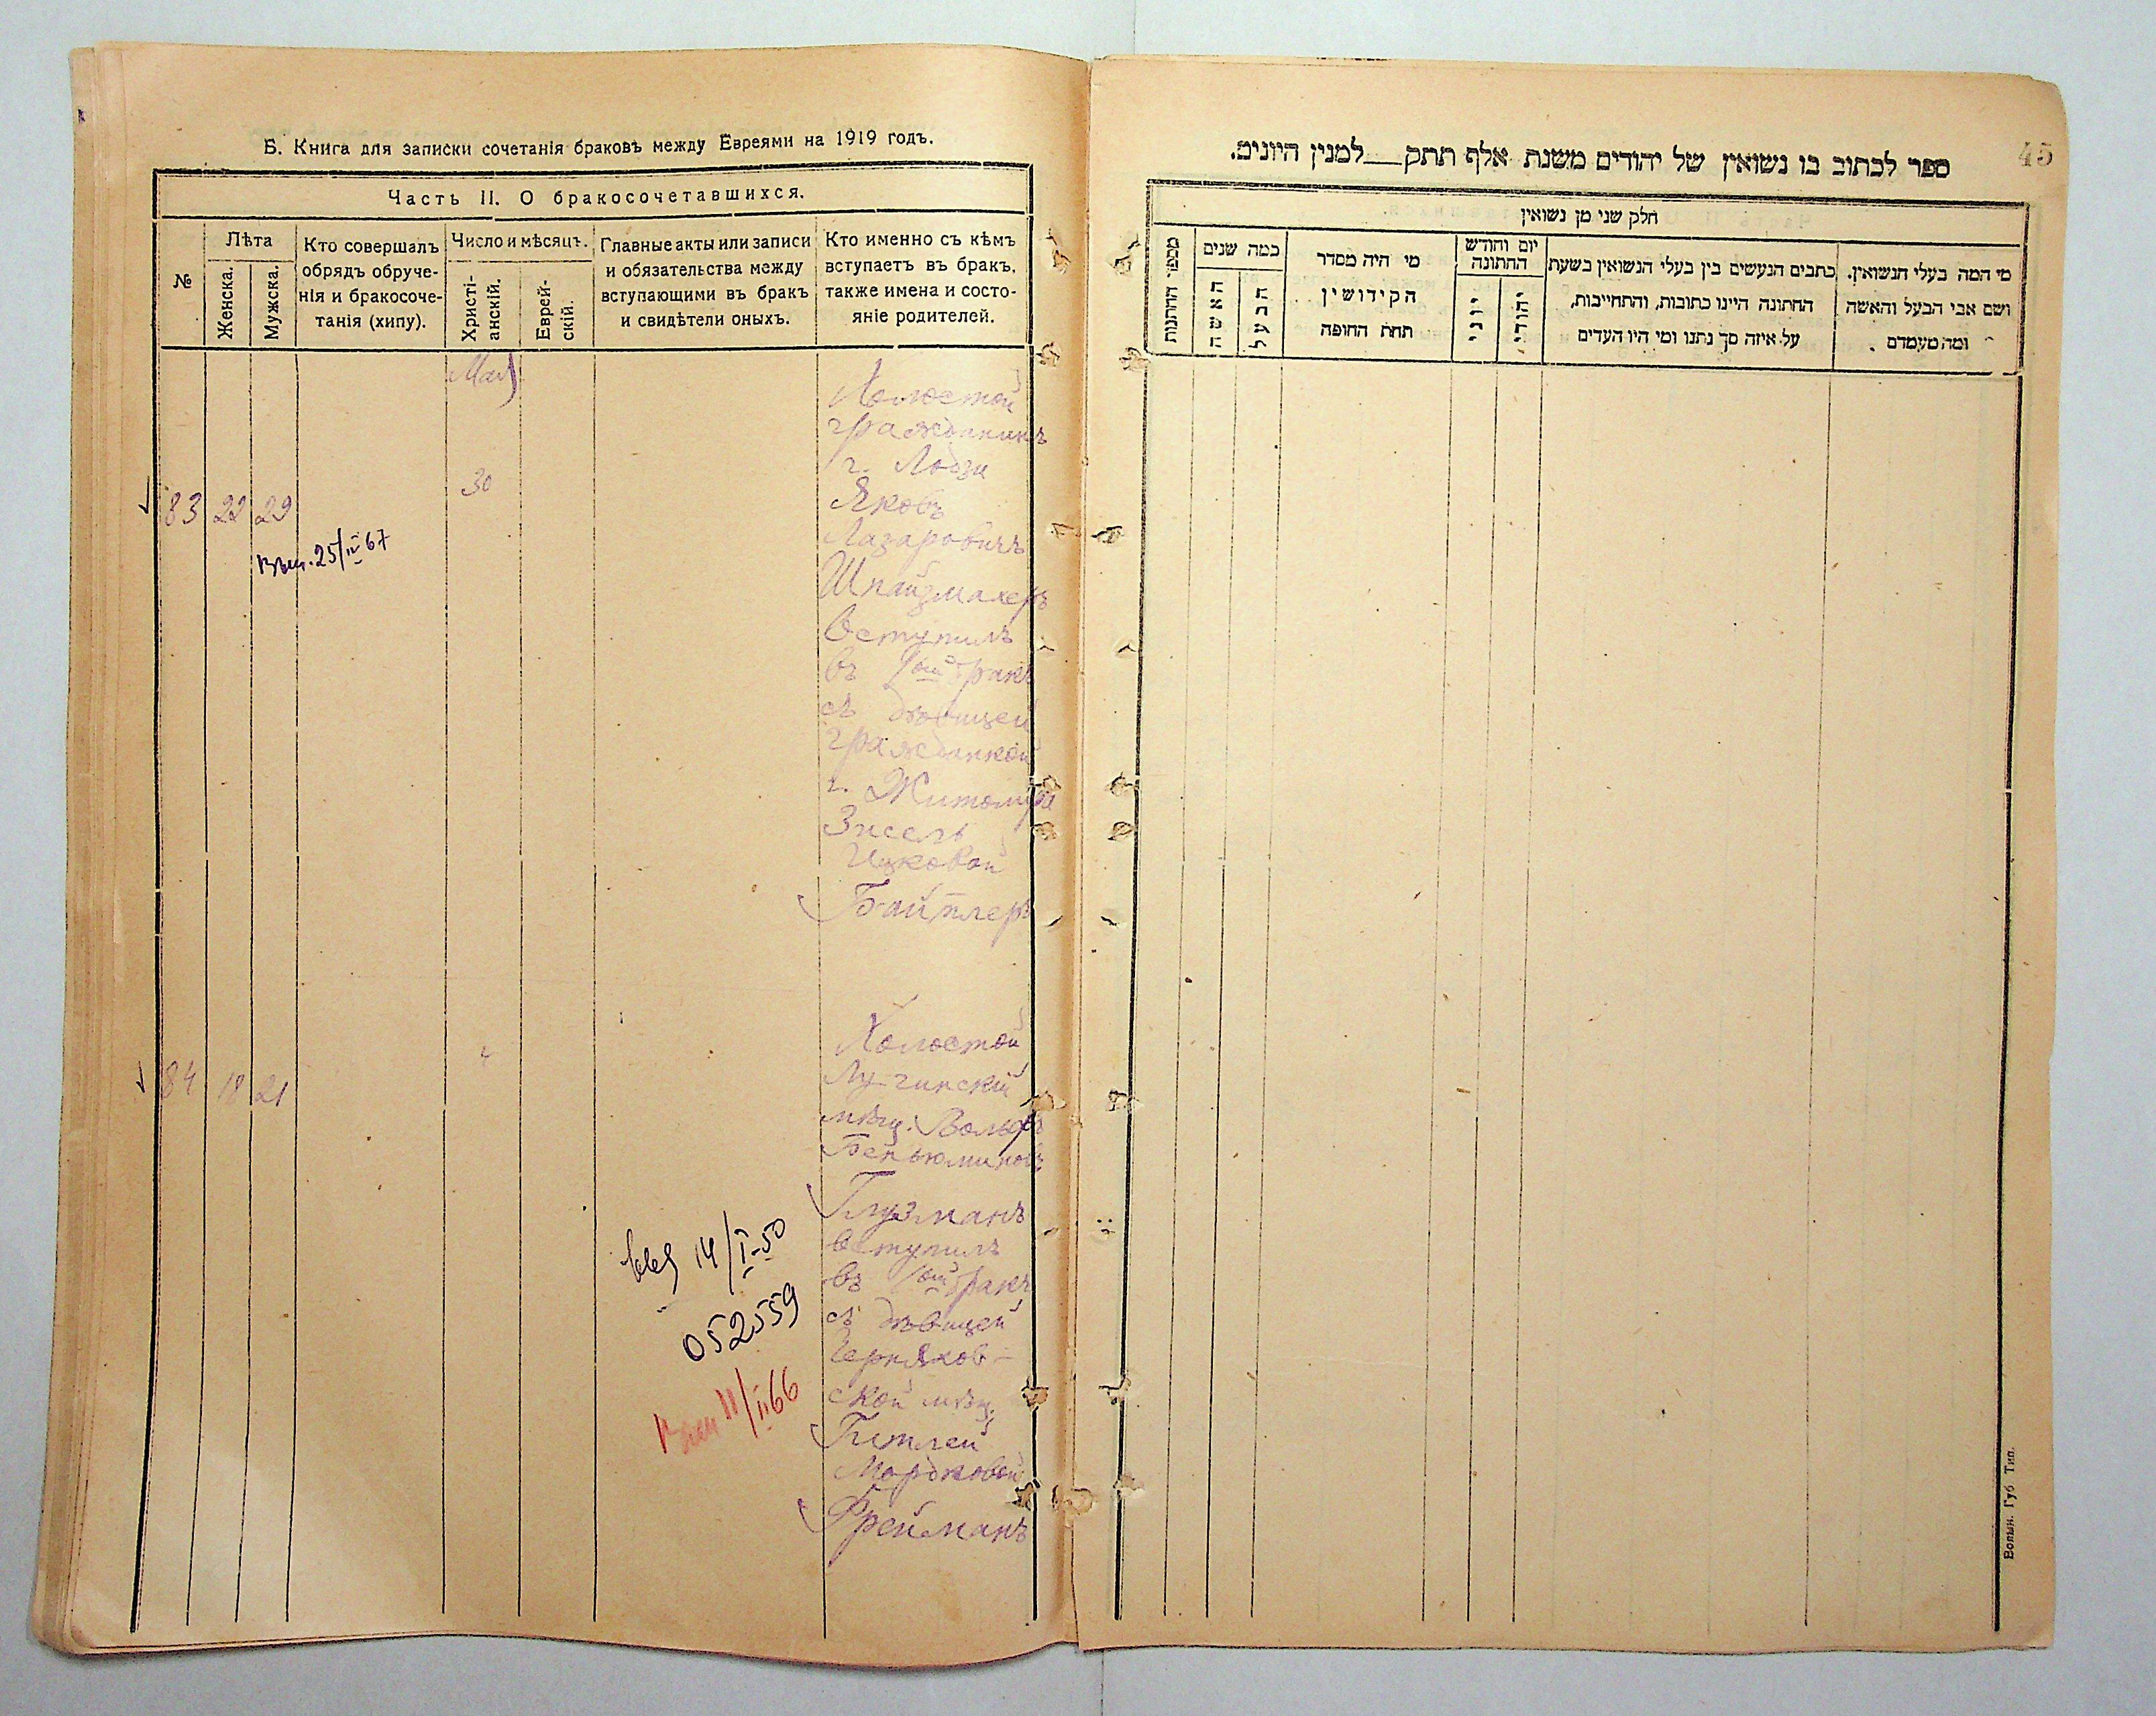 Б. Книга для записки сочетанія браковъ между Евреями на 1919 годъ.
Часть II. О бракосочетавшихся.
№
Лѣта
Женска.
Мужска.
Кто совершалъ
обрядъ обруче-
нія и бракосоче-
танія (хипу).
Число и мѣсяцъ.
Христі-
анскій.
Еврей-
скій.
Главные акты или записи
и обязательства между
вступающими въ бракъ
и свидѣтели оныхъ.
Кто именно съ кѣмъ
вступаетъ въ бракъ,
также имена и состо-
яніе родителей.
Май
83 22 29
30
25/IV 67
Холостой
гражданинъ
г. Лодзи
Якобъ
Лазаровичъ
Шпайзмахеръ
вступилъ
въ 1ый бракъ
съ дѣвицей
гражданкой
г. Житомира
Зисель
Ицковой
Байтлеръ
84 18 21
4
Холостой
Лугинскій
мѣщ. Вольфъ
Беньюминовъ
Глузманъ
вступилъ
въ 1ый бракъ
съ дѣвицей
Черняхов-
ской мѣщ.
Гитлей
Мордковой
Фрейманъ
14/I-50
052559
11/II 66
45
ספר לכתוב בו נשואין של יהודים משנת אלף תתק למנין היונים.
חלק שני מן נשואין
מספר החתנות
כמה שנים
האשה
הבעל
מי היה מסדר
הקידושין
תחת החופה
יום וחודש
החתונה
יוני
יהודי
כתבים הנעשים בין בעלי הנשואין בשעת
החתונה היינו כתובות, והתחייבות,
על איזה סך נתנו ומי היו העדים
מי המה בעלי הנשואין.
ושם אבי הבעל והאשה
ומה מעמדם
Волын. Губ Тип.